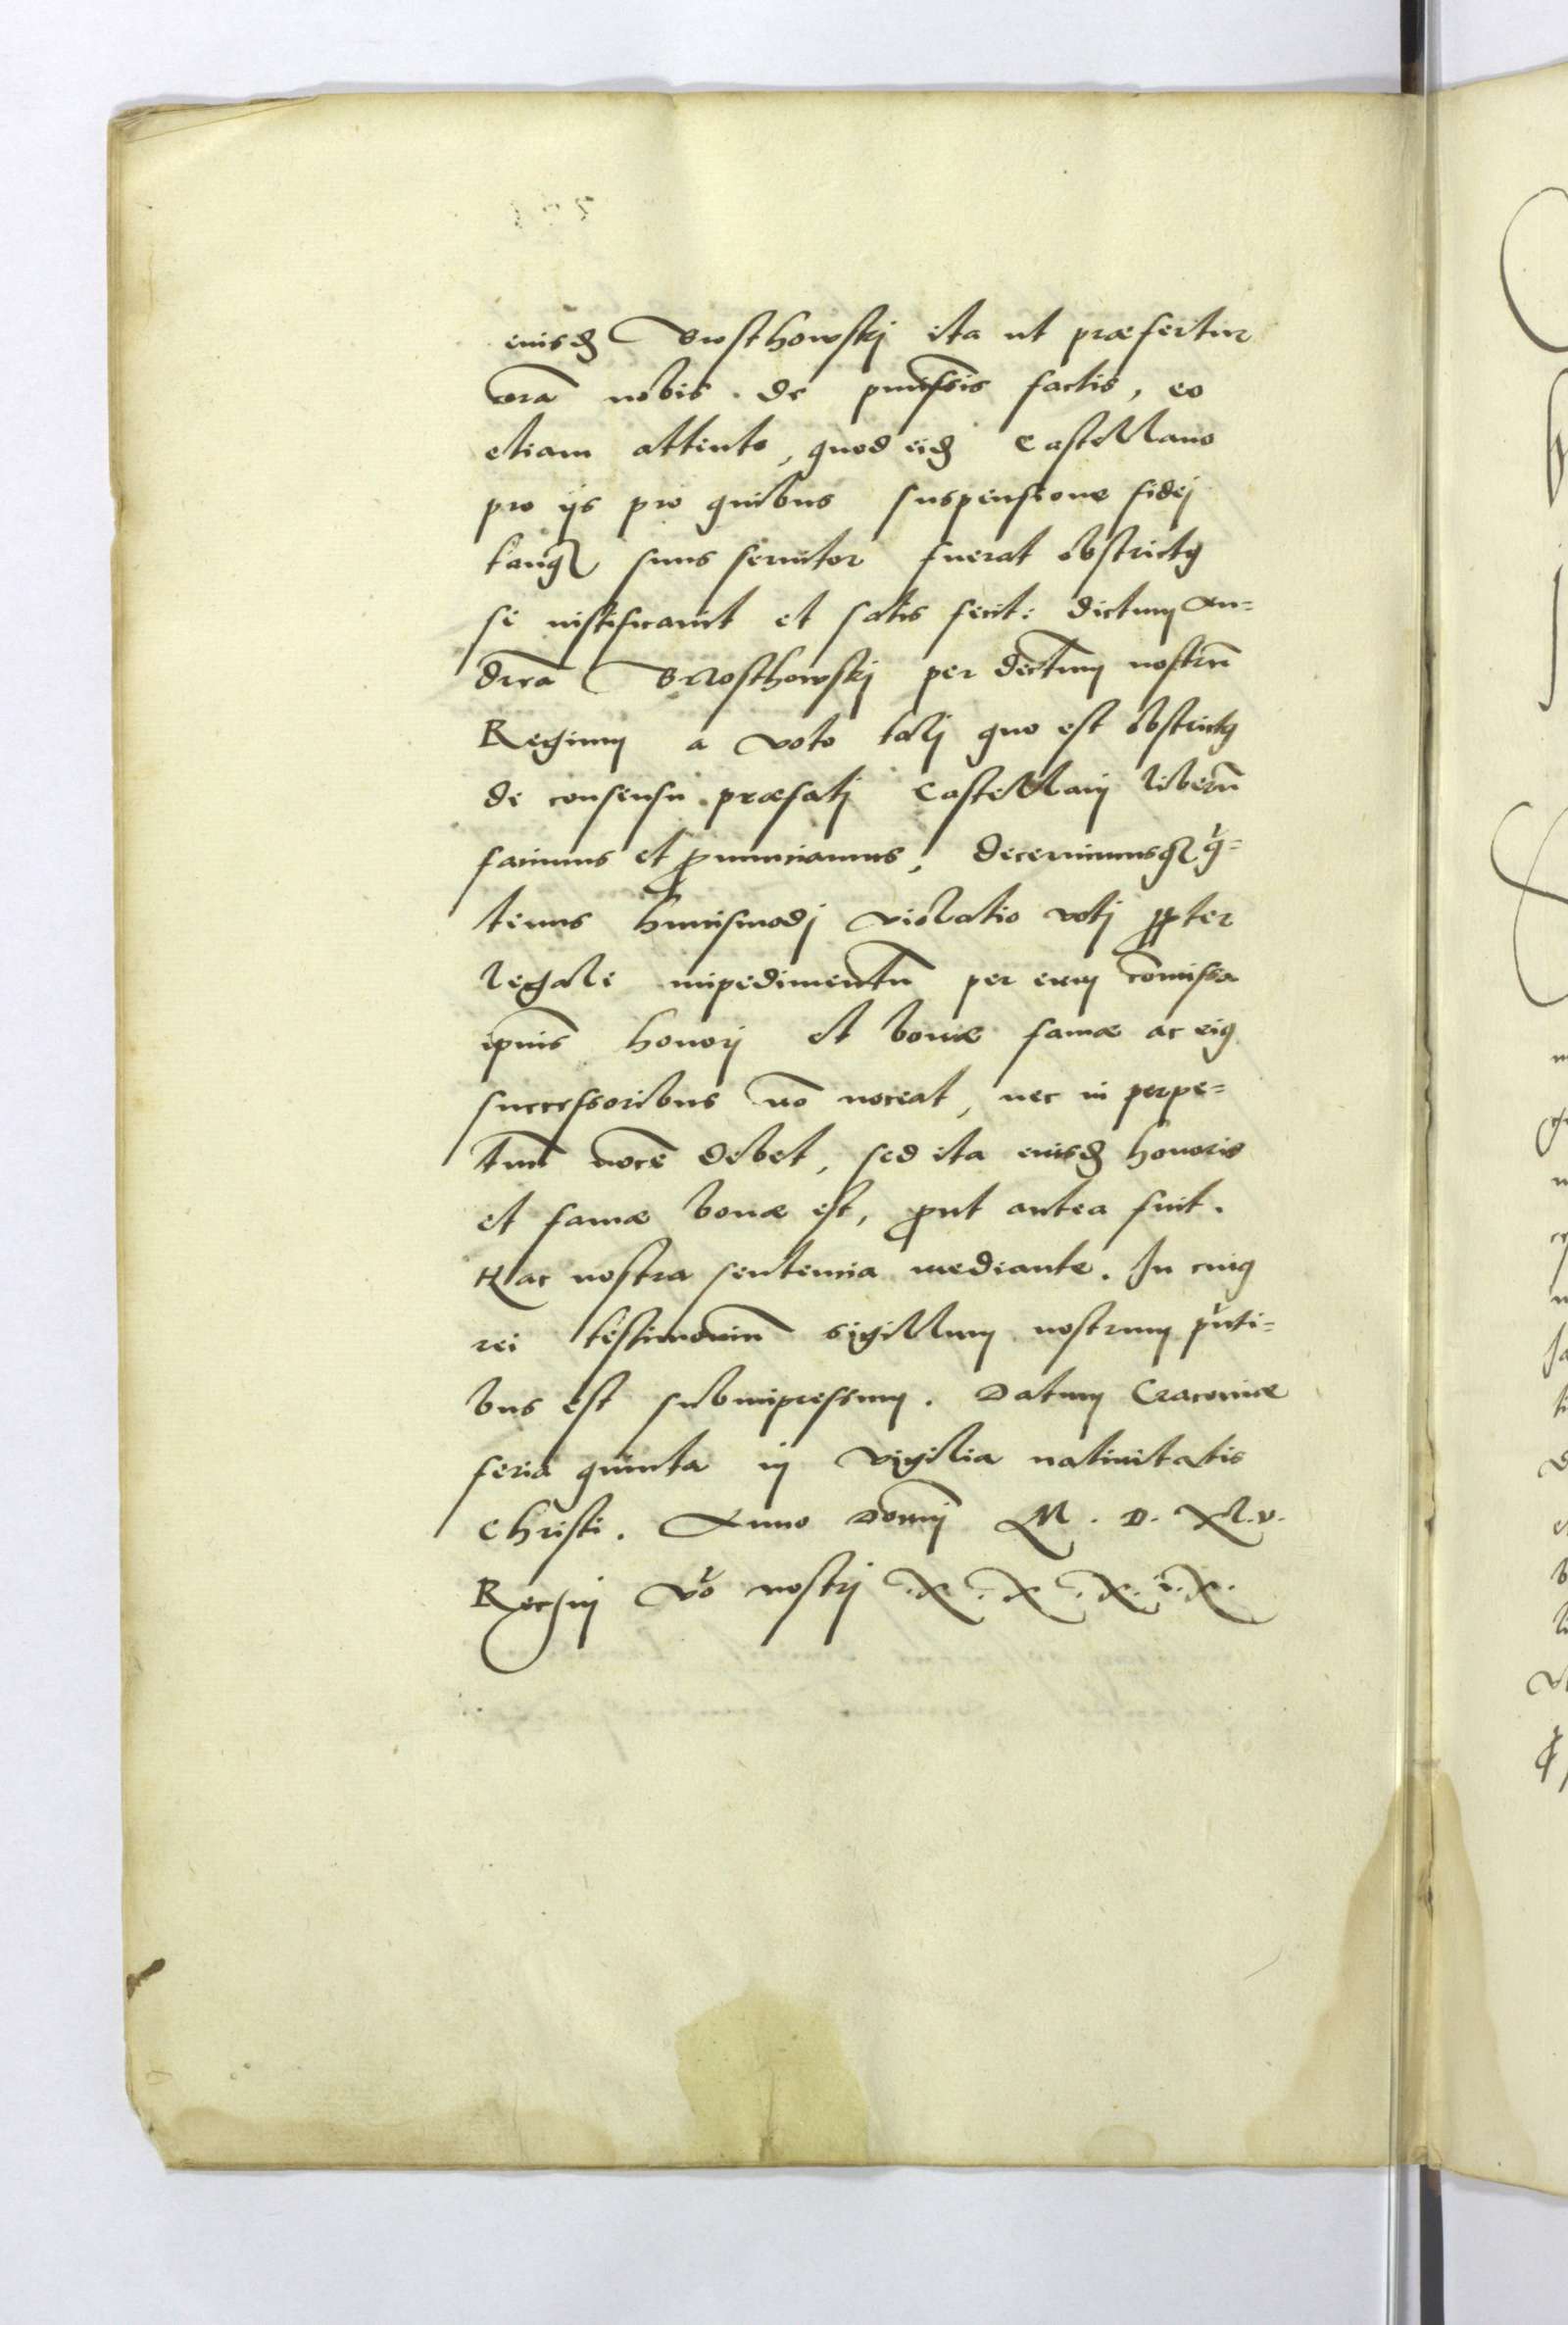 eiusđ Brosthowskj ita ut præfertur
corā nobis de pmissis factis, eo
etiam attento, quod eiđ Castellano
pro ijs pro quibus suspensione fidej
tanq suus seruitor fuerat obstrictꝰ
se iustificauit et satis fecit: dictum An=
dreā Brzosthowskj per dectum nostrū
Regium a voto talj quo est obstrictꝰ
de consensu præfatj Castellanj liberū
facimus et ꝓnunciamus, decernimusqꝫ q=
tenus huiusmodj violatio votj ꝓpter
legale impedimentū per eum cōmissa
ipius honorj et bonæ famæ ac eiꝰ
successoribus nō noceat, nec in perpe=
tuū nocē debet, sed ita eiusđ honoris
et famæ bonæ est, ꝓut antea fuit.
Hac nostra sentencia mediante. In cuiꝰ
rei testimoniū sigillum nostrum pnti=
bus est subimpressum. Datum Cracouiæ
feria quinta in vigilia natiuitatis
Christi. Anno Domj M. D. XL.v.
Regnj vo nostrj .X.X.X.i.X.